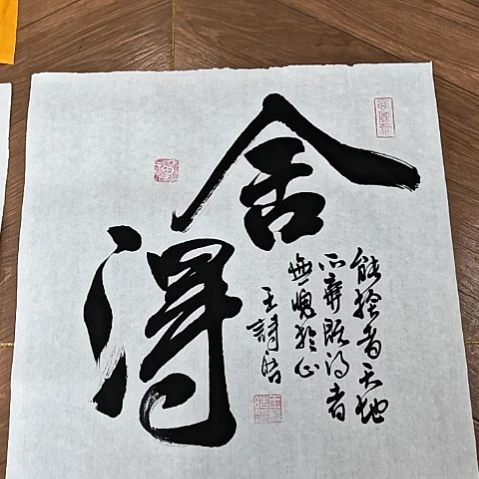 舍得
能捨者天地
不棄既得者
無愧於心
王詩浩